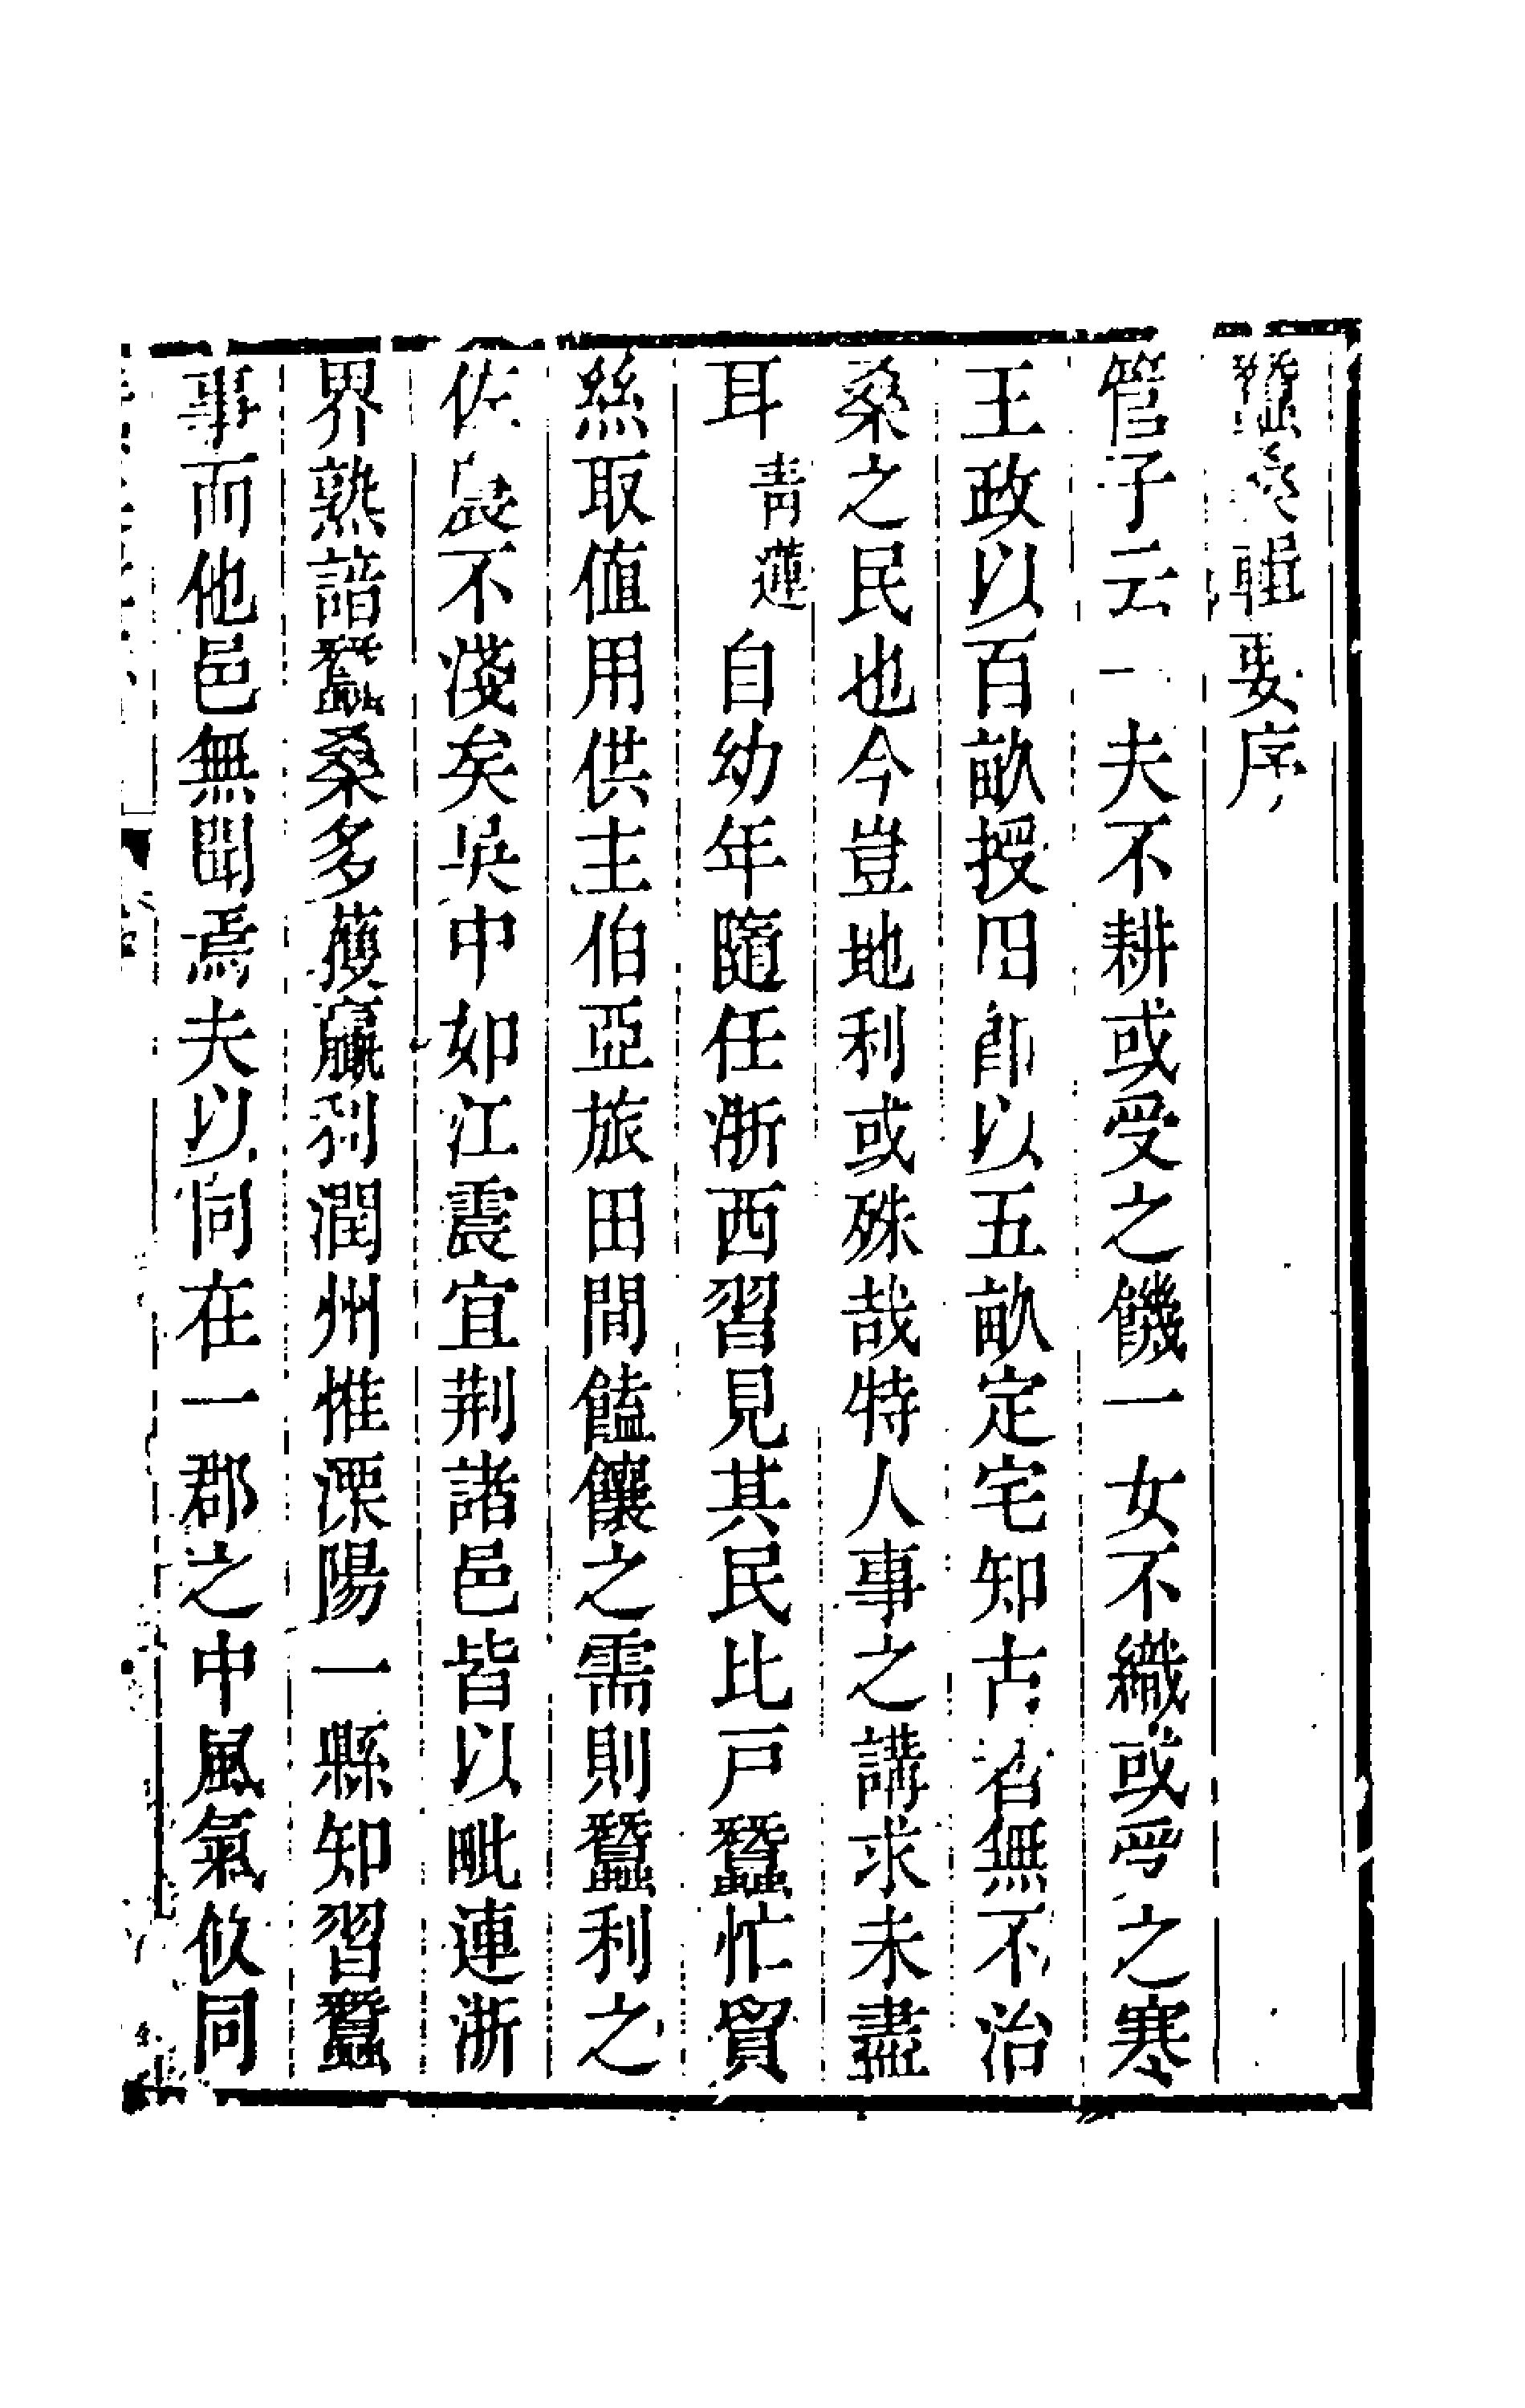 蠶桑輯要序
管子云一夫不耕或受之饑一女不織或受之寒
王政以百畝授田卽以五畝定宅知古者無不治
桑之民也今豈地利或殊哉特人事之講求未盡
耳青蓮自幼年隨任浙西習見其民比戸蠶忙貿
絲取值用供主伯亞旅田間饁饟之需則蠶利之
佐農不淺矣吳中如江震宜荆諸邑皆以毗連浙
界熟諳蠶桑多獲贏利潤州惟溧陽一縣知習蠶
事而他邑無聞焉夫以同在一郡之中風氣攸同